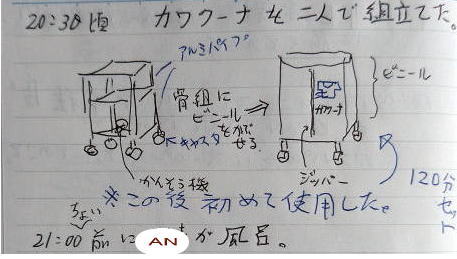 20:30頃 カワクーナを二人で組立てた。
アルミパイプ
骨組に
ビニール
をかぶ
せる
⇒
カワクーナ
ビニール
キャスター
かんそう機
ジッパー
120分
セット
※この後初めて使用した。
ちょい
21:00前に AN が風呂。